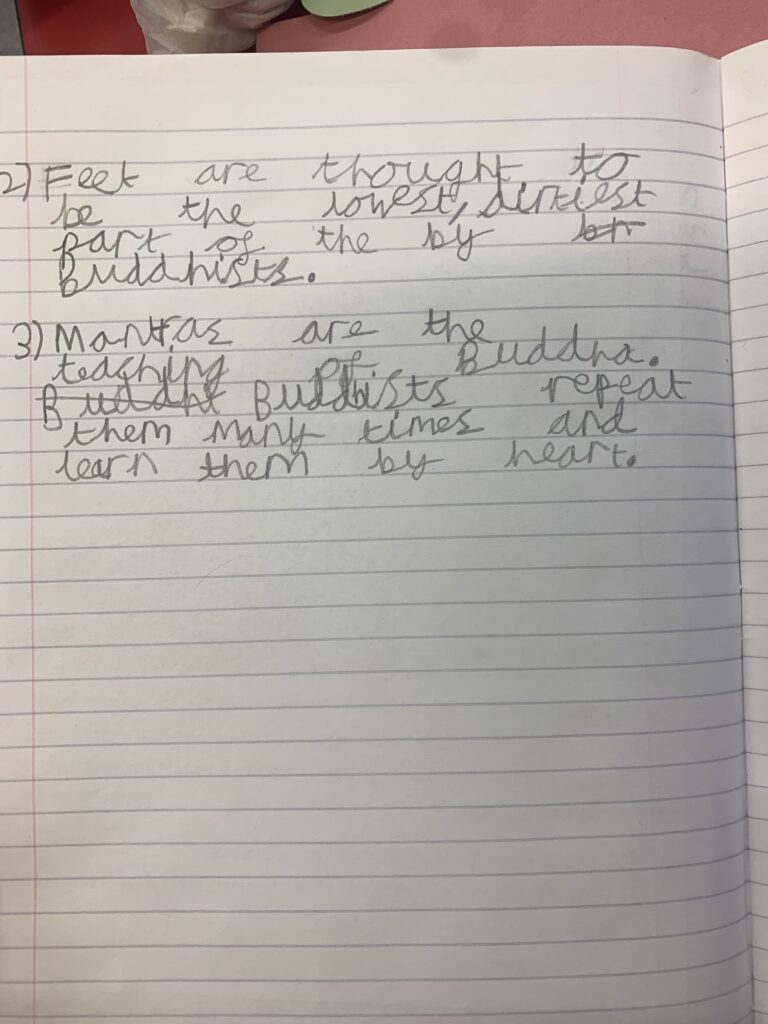 2) Feet are thought to
be the lowest, dirtiest
part of the by br
Buddhists.
3) Mantras are the
teaching of Buddha.
Buddht Buddhists repeat
them many times and
learn them by heart.